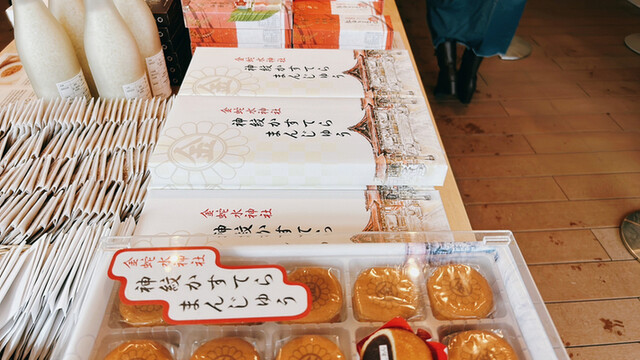 金蛇水神社
神紋かすてら
まんじゅう
金
金蛇水神社
神紋かすてら
まんじゅう
金
金蛇水神社
神紋かすてら
まんじゅう
金蛇水神社
神紋かすてら
まんじゅう